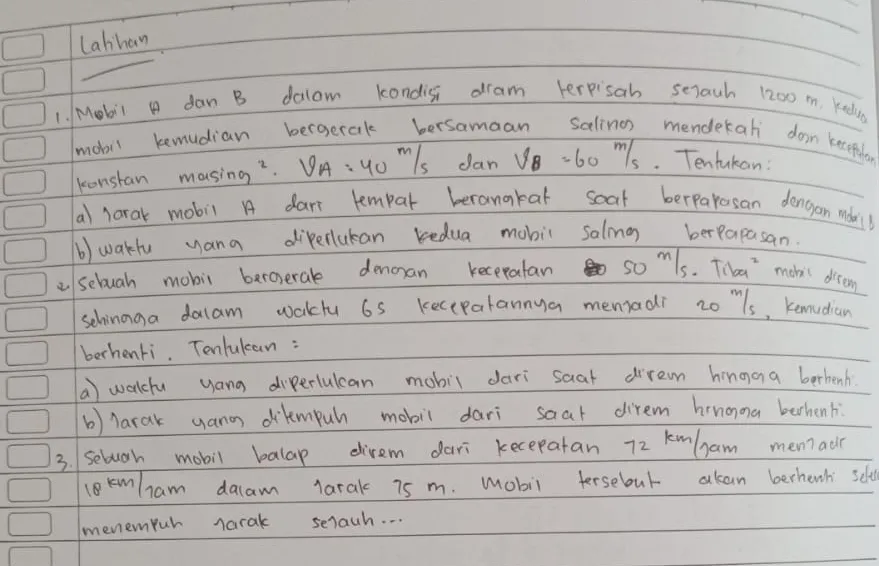 Latihan
1. Mobil A dan B dalam kondisi diam terpisah sejauh 1200 m. kedua
mobil kemudian bergerak bersamaan saling mendekati dgn kecepatan
konstan masing². VA = 40 m/s dan VB = 60 m/s. Tentukan:
a) Jarak mobil A dari tempat berangkat saat berpapasan dengan mobil B
b) waktu yang diperlukan kedua mobil saling berpapasan.
2. Sebuah mobil bergerak dengan kecepatan 50 m/s. Tiba² mobil direm
sehingga dalam waktu 6s kecepatannya menjadi 20 m/s, kemudian
berhenti. Tentukan:
a) waktu yang diperlukan mobil dari saat direm hingga berhenti.
b) Jarak yang ditempuh mobil dari saat direm hingga berhenti.
3. Sebuah mobil balap direm dari kecepatan 72 km/jam menjadi
18 km/jam dalam jarak 75 m. Mobil tersebut akan berhenti
menempuh jarak sejauh...